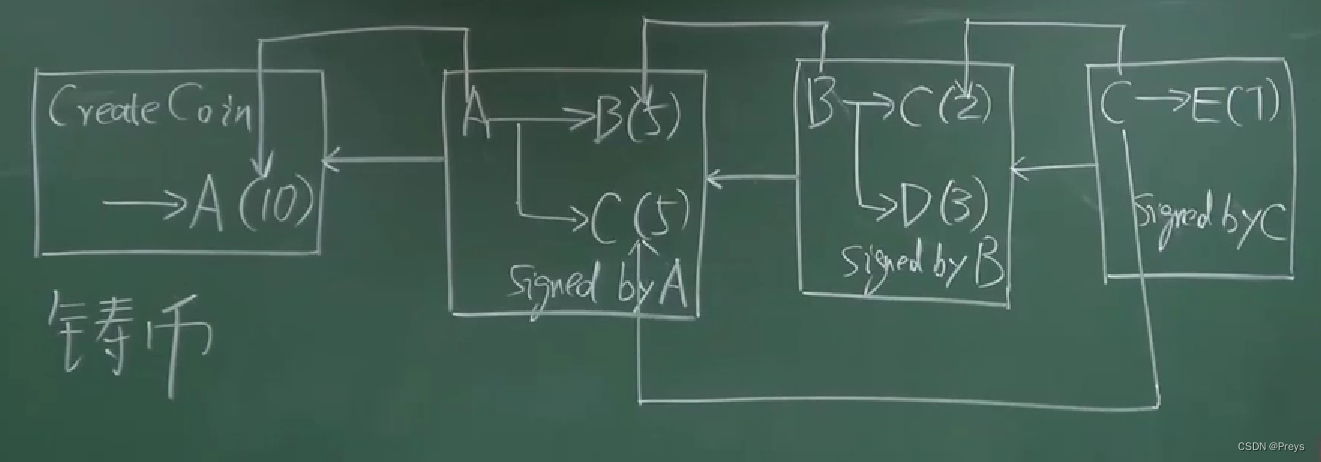 CreateCoin
→A(10)
A→B(5)
→C(5)
signed by A
B→C(2)
→D(3)
signed by B
C→E(7)
signed by C
铸币
CSDN @Preys